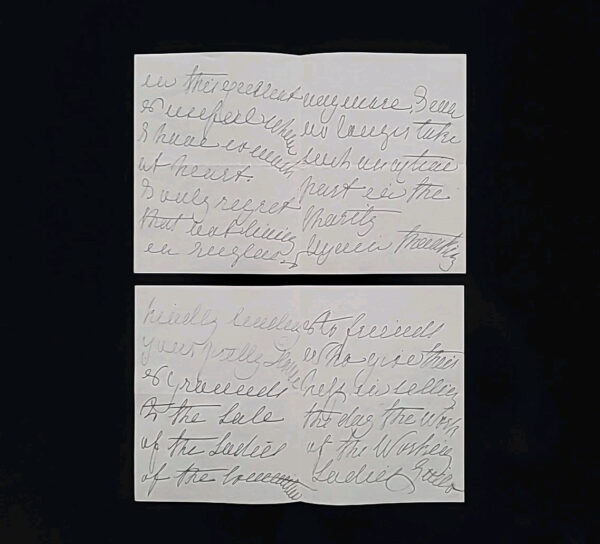 in this
& useful
I have so much
at heart.
I only regret
that not living
in England I
any more, I can
no longer take
such an active
part in the
Charity
Again thanking
kindly lending
your pretty House
& grounds
to the Sale
of the Ladies
of the Committee
& to friends
who give their
help in selling
the day the Work
of the Working
Ladies Guild